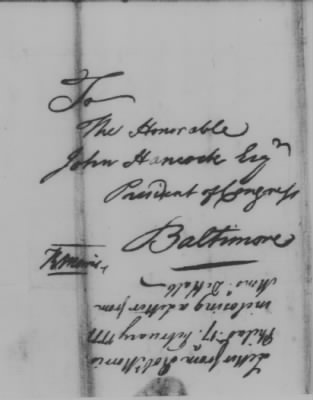 To
The Honorable
John Hancock Esqr
President of Congress
Baltimore
R Morris
Letter from Robt Morris
Philad. 17. February 1777
inclosing a letter from
Monsr. De Kalb